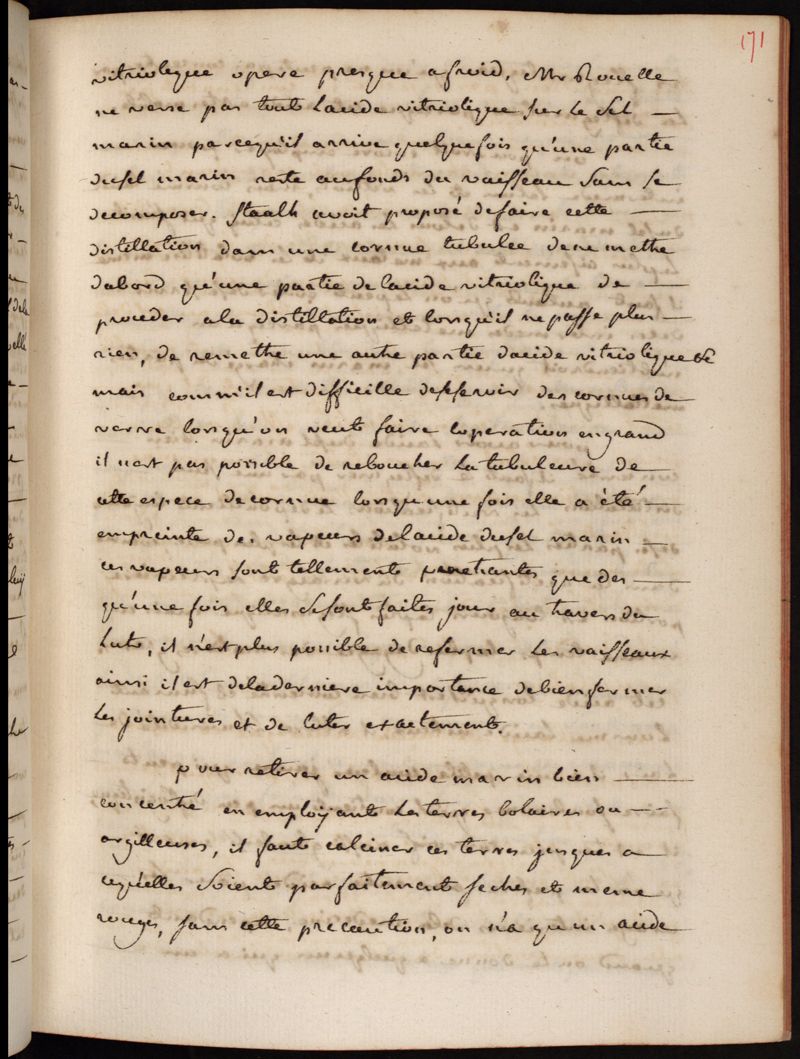 171
vitriolique opere presque a froid, Mr Rouelle
ne verse pas tout Lacide vitriolique sur Le Sel —
marin parcequ'il arrive quelquefois qu'une partie
dusel marin reste aufonds du vaisseau Sans Se
decomposer. Staalh avoit proposé defaire cette —
distillation dans une cornue tubulée dene mettre
dabord qu'une partie de lacide vitriolique de —
proceder ala distillation et lorsqu'il nepasse plus —
rien, de remettre une autre partie dacide vitriolique &c
mais comm'il est difficille desservir des cornues de
verre lorsqu'on veut faire loperation engrand
il n'est pas possible de reboucher La tubuleure de
cette espece de cornue lorsqu'une fois elle a été —
empreinte de vapeurs delacide dusel marin —
ces vapeurs sont tellement penetrantes que des —
qu'une fois elles sesont faites jour au travers du
Lut, il n'est plus possible de refermer Les vaisseaux
ainsi il est deladerniere importance debien fermer
Les jointures et de luter exactement.
pour retirer un acide marin bien —
concentré en employant Les terres bolaires ou —
argilleuses, il faut calciner ces terres jusques a
cequ'elles Soient parfaitement seches et meme
rouges, sans cette precaution, on n'a qu'un acide